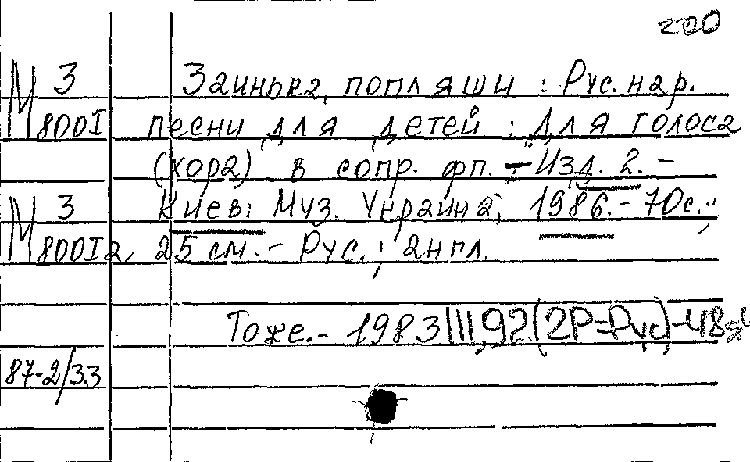 200
М 3 Заинька, попляши : Рус. нар.
8001 песни для детей : Для голоса
(хора) в сопр. фп. - Изд. 2. -
М 3 Киев: Муз. Украина, 1986. - 70с.;
8001а, 25 см. - Рус. ; англ.
Тоже. - 1983 III,92(2Р=Рус)-48
87-2/33